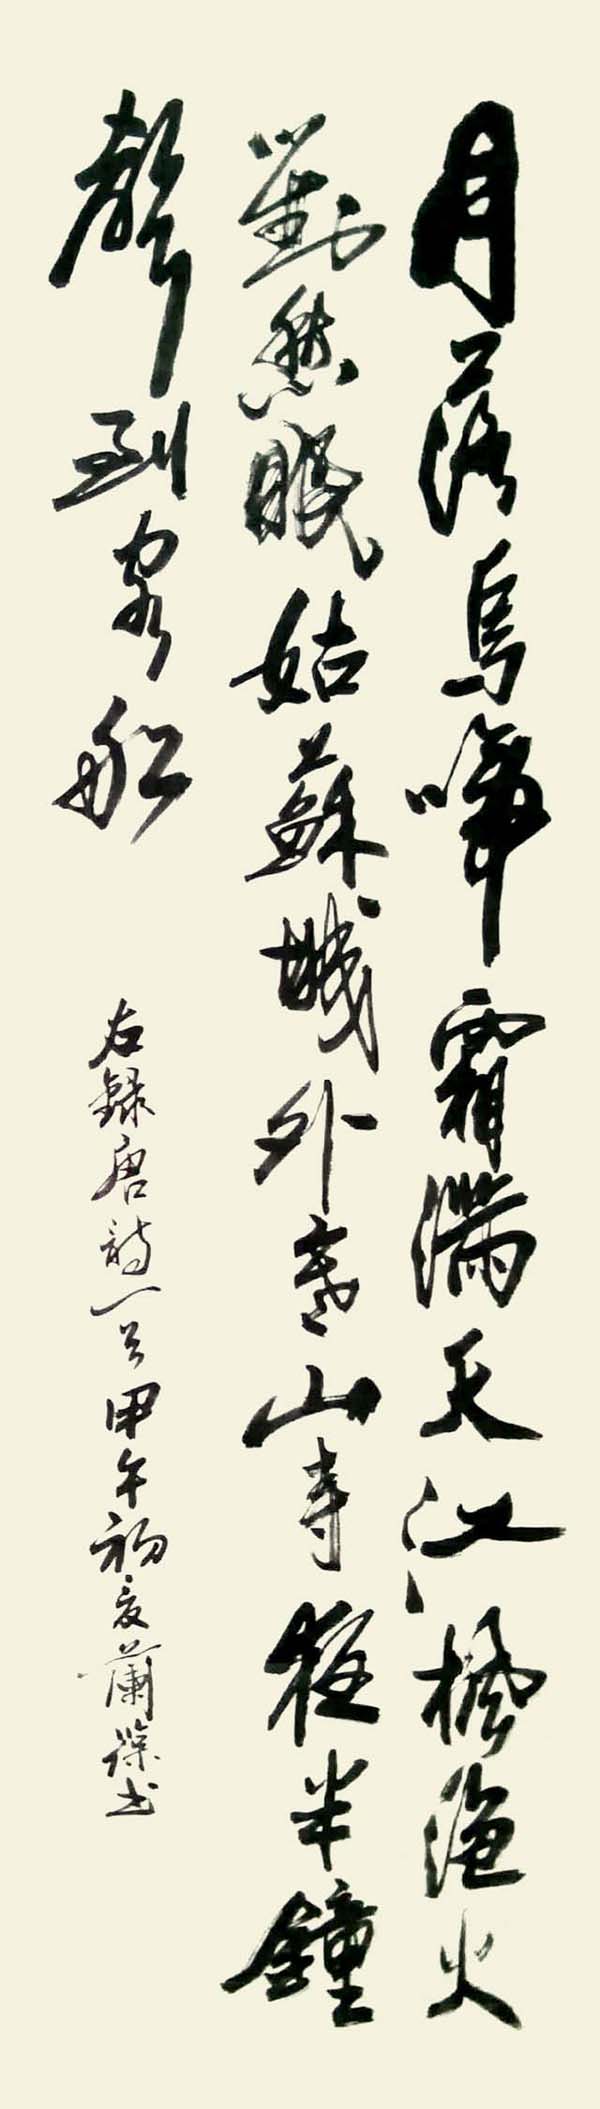 月落烏啼霜滿天江楓漁火
對愁眠姑蘇城外寒山寺夜半鐘
聲到客船
右錄唐詩一首甲午初夏蘭书